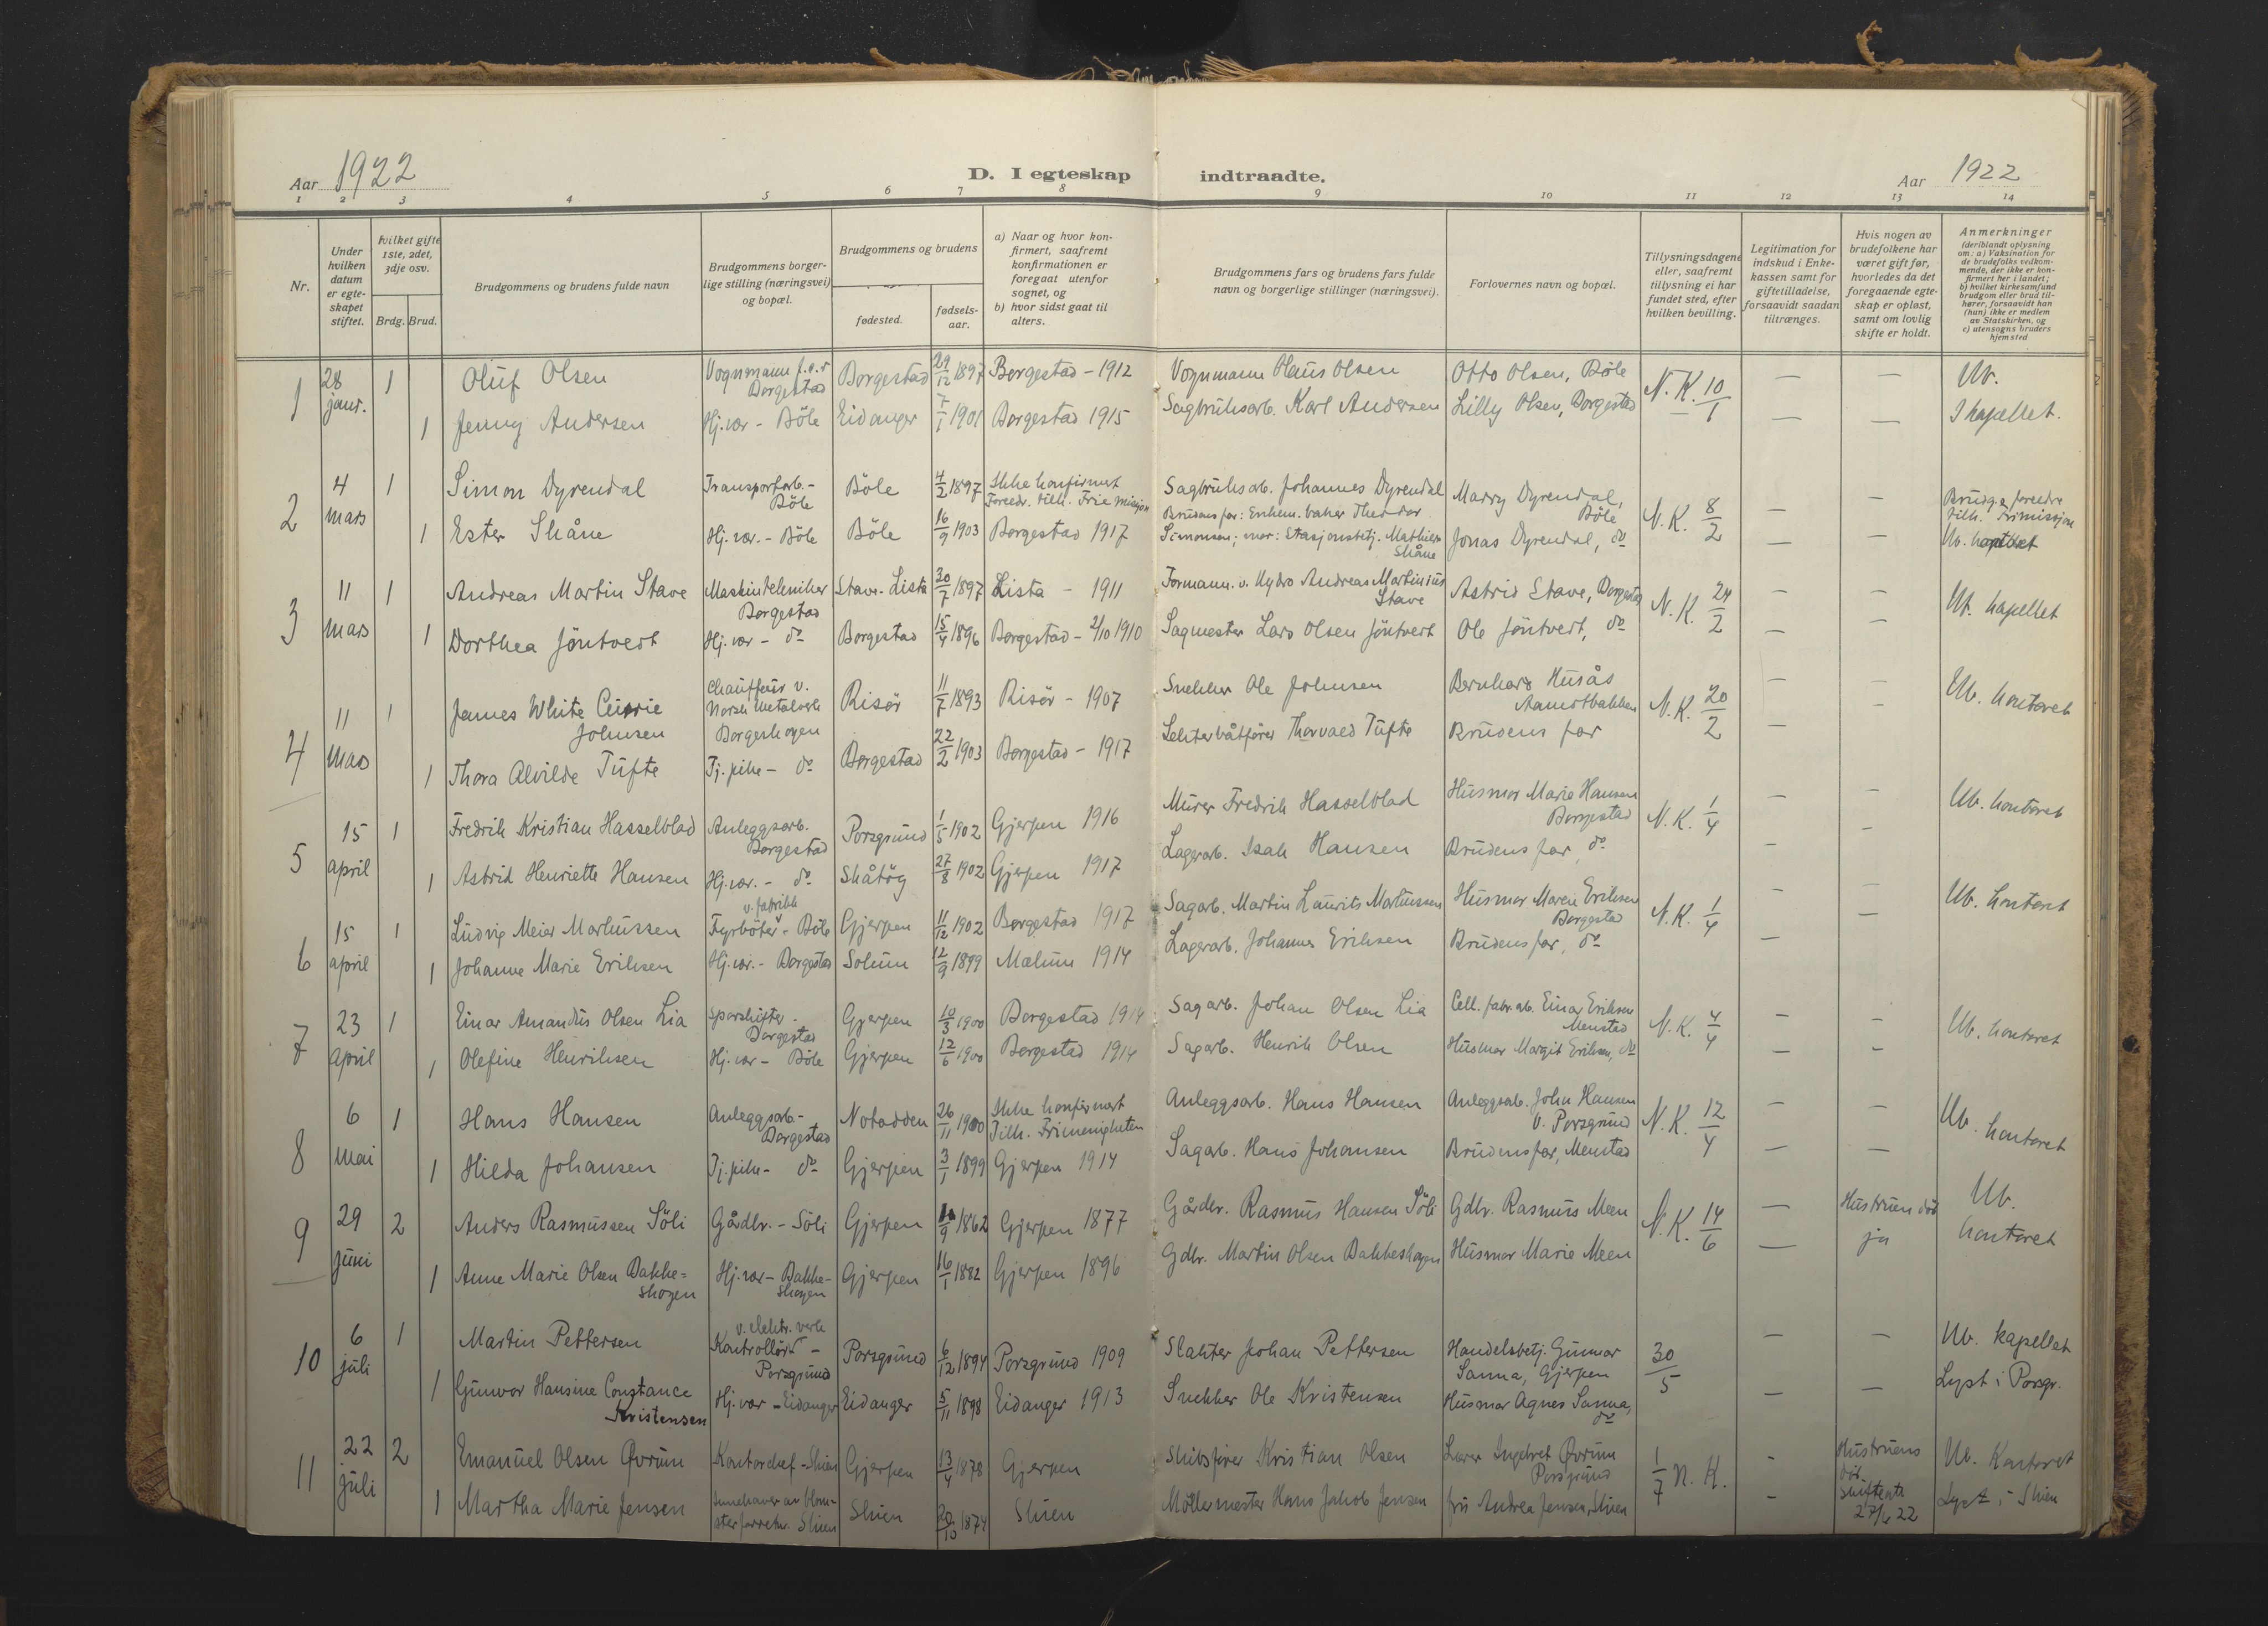 Aar 1922
D. I egteskap indtraadte.
Aar 1922
1 2 3 4 5 6 7 8 9 10 11 12 13 14
Nr.
Under hvilken datum er egteskapet stiftet.
Hvilket gifte 1ste, 2det, 3dje osv.
Brdg. Brud.
Brudgommens og brudens fulde navn
Brudgommens borgerlige stilling (næringsvei) og bopæl.
Brudgommens og brudens
fødested.
fødselsaar.
a) Naar og hvor konfirmert, saafremt konfirmationen er foregaat utenfor sognet, og
b) hvor sidst gaat til alters.
Brudgommens fars og brudens fars fulde navn og borgerlige stillinger (næringsvei).
Forlovernes navn og bopæl.
Tillysningsdagene eller, saafremt tillysning ei har fundet sted, efter hvilken bevilling.
Legitimation for indskud i Enkekassen samt for giftetilladelse, forsaavidt saadan tiltrænges.
Hvis nogen av brudefolkene har været gift før, hvorledes da det foregaaende egteskap er opløst, samt om lovlig skifte er holdt.
Anmerkninger (deriblandt oplysning om: a) Vaksination for de brudefolks vedkommende, der ikke er konfirmert her i landet; b) hvilket kirkesamfund brudgom eller brud tilhører, forsaavidt han (hun) ikke er medlem av Statskirken, og c) utensogns bruders hjemsted
1 28 janr. 1 Oluf Olsen Vognmann f.o.s Borgestad Borgestad 29/12 1897 Borgestad - 1912 Vognmann Hans Olsen Otto Olsen, Böle N.K. 10/1 — — Ub.
1 Jenny Andersen Hj.vær - Böle Eidanger 7/1 1901 Borgestad 1915 Sagbruksarb. Karl Andersen Lilly Olsen, Borgestad — — I kapellet.
2 4 mars 1 Simon Dyrendal Transportarb. - Böle Böle 4/2 1897 Ikke konfirmert Foreldr. tilh. Frie Misjon Sagbruksarb. Johannes Dyrendal Marry Dyrendal, Böle N.K. 8/2 — — Brudg.s foreldre tilh. Frimissjon
1 Ester Skåne Hj.vær. - Böle Böle 16/9 1903 Borgestad 1917 Brudens far: Enkem. baker Theodor Simonsen; mor: Stasjonsbetj. Mathias Skåne Jonas Dyrendal, do — — Ub. kapellet
3 11 mars 1 Andreas Martin Stave Maskintekniker Borgestad Stave - Lista 30/7 1897 Lista - 1911 Formann v. Hydro Andreas Martinius Stave Astrid Stave, Borgestad N.K. 24/2 — — Ub. kapellet
1 Dorthea Jöntvedt Hj.vær - do Borgestad 15/4 1896 Borgestad - 2/10 1910 Sagmester Lars Olsen Jöntvedt Ole Jöntvedt, do — —
4 11 Mars 1 James White Currie Johnsen Chauffeur v. Norsk Metalverk Borgeskogen Risör 11/7 1893 Risör - 1907 Snekker Ole Johnsen Bernhard Husås Aamotbakken N.K. 20/2 — — Ub. kontoret
1 Thora Alvilde Tufte Tj.pike - do Borgestad 22/2 1903 Borgestad - 1917 Lekterbåtförer Thorvald Tufte Brudens far — —
5 15 april 1 Fredrik Kristian Hasselblad Anleggsarb. Borgestad Porsgrund 1/5 1902 Gjerpen 1916 Murer Fredrik Hasselblad Husmor Marie Hansen Borgestad N.K. 1/4 — — Ub. kontoret
1 Astrid Henriette Hansen Hj.vær. - do Skåtöy 27/8 1902 Gjerpen 1917 Lagerarb. Isak Hansen Brudens far, do — —
6 15 april 1 Ludvig Meier Markussen Fyrböter v. fabrikk - Böle Gjerpen 11/12 1902 Borgestad 1917 Sagarb. Martin Laurits Markussen Husmor Maren Eriksen Borgestad N.K. 1/4 — — Ub. kontoret
1 Johanne Marie Eriksen Hj.vær. - Borgestad Solum 12/9 1899 Mælum 1914 Lagerarb. Johannes Eriksen Brudens far, do — —
7 23 april 1 Einar Amandus Olsen Lia Sporskifter - Borgestad Gjerpen 10/3 1900 Borgestad 1914 Sagarb. Johan Olsen Lia Cell. fabr.arb. Einar Eriksen Menstad N.K. 4/4 — — Ub. kontoret
1 Olefine Henriksen Hj.vær - Böle Gjerpen 12/6 1900 Borgestad 1914 Sagarb. Henrik Olsen Husmor Margit Eriksen, do — —
8 6 Mai 1 Hans Hansen Anleggsarb - Borgestad Notodden 26/11 1900 Ikke konfirmert Tilh. Frimenigheten Anleggsarb. Hans Hansen Anleggsarb. John Hansen V. Porsgrund N.K. 12/4 — — Ub. kontoret
1 Hilda Johansen Tj.pike - do Gjerpen 3/1 1899 Gjerpen 1914 Sagarb. Hans Johansen Brudens far, Menstad — —
9 29 juni 2 Anders Rasmussen Söli Gårdbr. - Söli Gjerpen /9 1862 Gjerpen 1877 Gårdbr. Rasmus Hansen Söli Gdbr. Rasmus Meen N.K. 14/6 — Hustruen död Ub. kontoret
1 Anne Marie Olsen Bakkeskogen Hj.vær - Bakkeskogen Gjerpen 16/1 1882 Gjerpen 1896 Gdbr. Martin Olsen Bakkeskogen Husmor Marie Meen — ja
10 6 juli 1 Martin Pettersen Kontrollör v. elektr. verk - Porsgrund Porsgrund 6/12 1894 Porsgrund 1909 Slakter Johan Pettersen Handelsbetj. Gunnar Sanna, Gjerpen 30/5 — — Ub. kapellet
1 Gunvor Hansine Constance Kristensen Hj.vær - Eidanger Eidanger 5/11 1898 Eidanger 1913 Snekker Ole Kristensen Husmor Agnes Sanna, do — — Lyst i Porsgr.
11 22 juli 2 Emanuel Olsen Övrum Kontorchef - Skien Gjerpen 13/4 1878 Gjerpen Skibsförer Kristian Olsen Lærer Ingebret Övrum Porsgrund 1/7 N.K. - Hustruens död Skifteatt. 27/6 22 Ub. Kontoret
1 Martha Marie Jensen Innehaver av blomsterforretn. Skien Skien 20/10 1874 Skien Möllermester Hans Jakob Jensen frk Andrea Jensen, Skien - Lyst i Skien